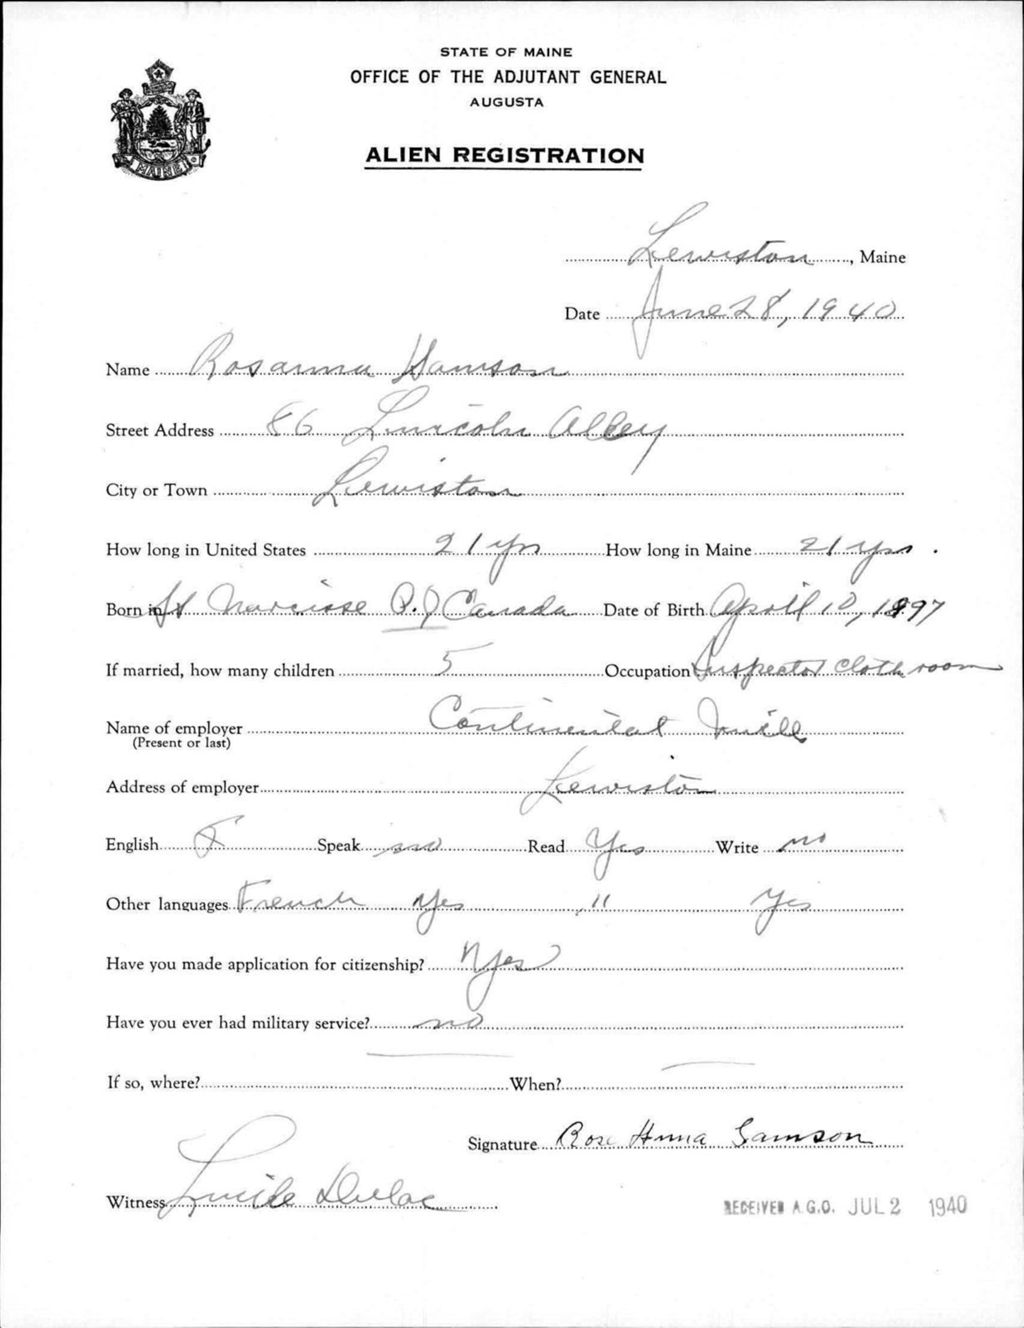 STATE OF MAINE
OFFICE OF THE ADJUTANT GENERAL
AUGUSTA
MAINE
ALIEN REGISTRATION
Lewiston, Maine
Date June 28, 1940
Name Rosanna Samson
Street Address 86 Lincoln Alley
City or Town Lewiston
How long in United States 21 yrs How long in Maine 21 yrs.
Born in St Narcisse P.Q Canada Date of Birth April 10, 1897
If married, how many children 5 Occupation Inspector cloth room
Name of employer Continental Mill
(Present or last)
Address of employer Lewiston
English Speak no Read Yes Write no
Other languages French Yes " Yes
Have you made application for citizenship? Yes
Have you ever had military service? no
If so, where? When?
Signature Rose Anna Samson
Witness Lucile Dulac
RECEIVED A.G.O. JUL 2 1940